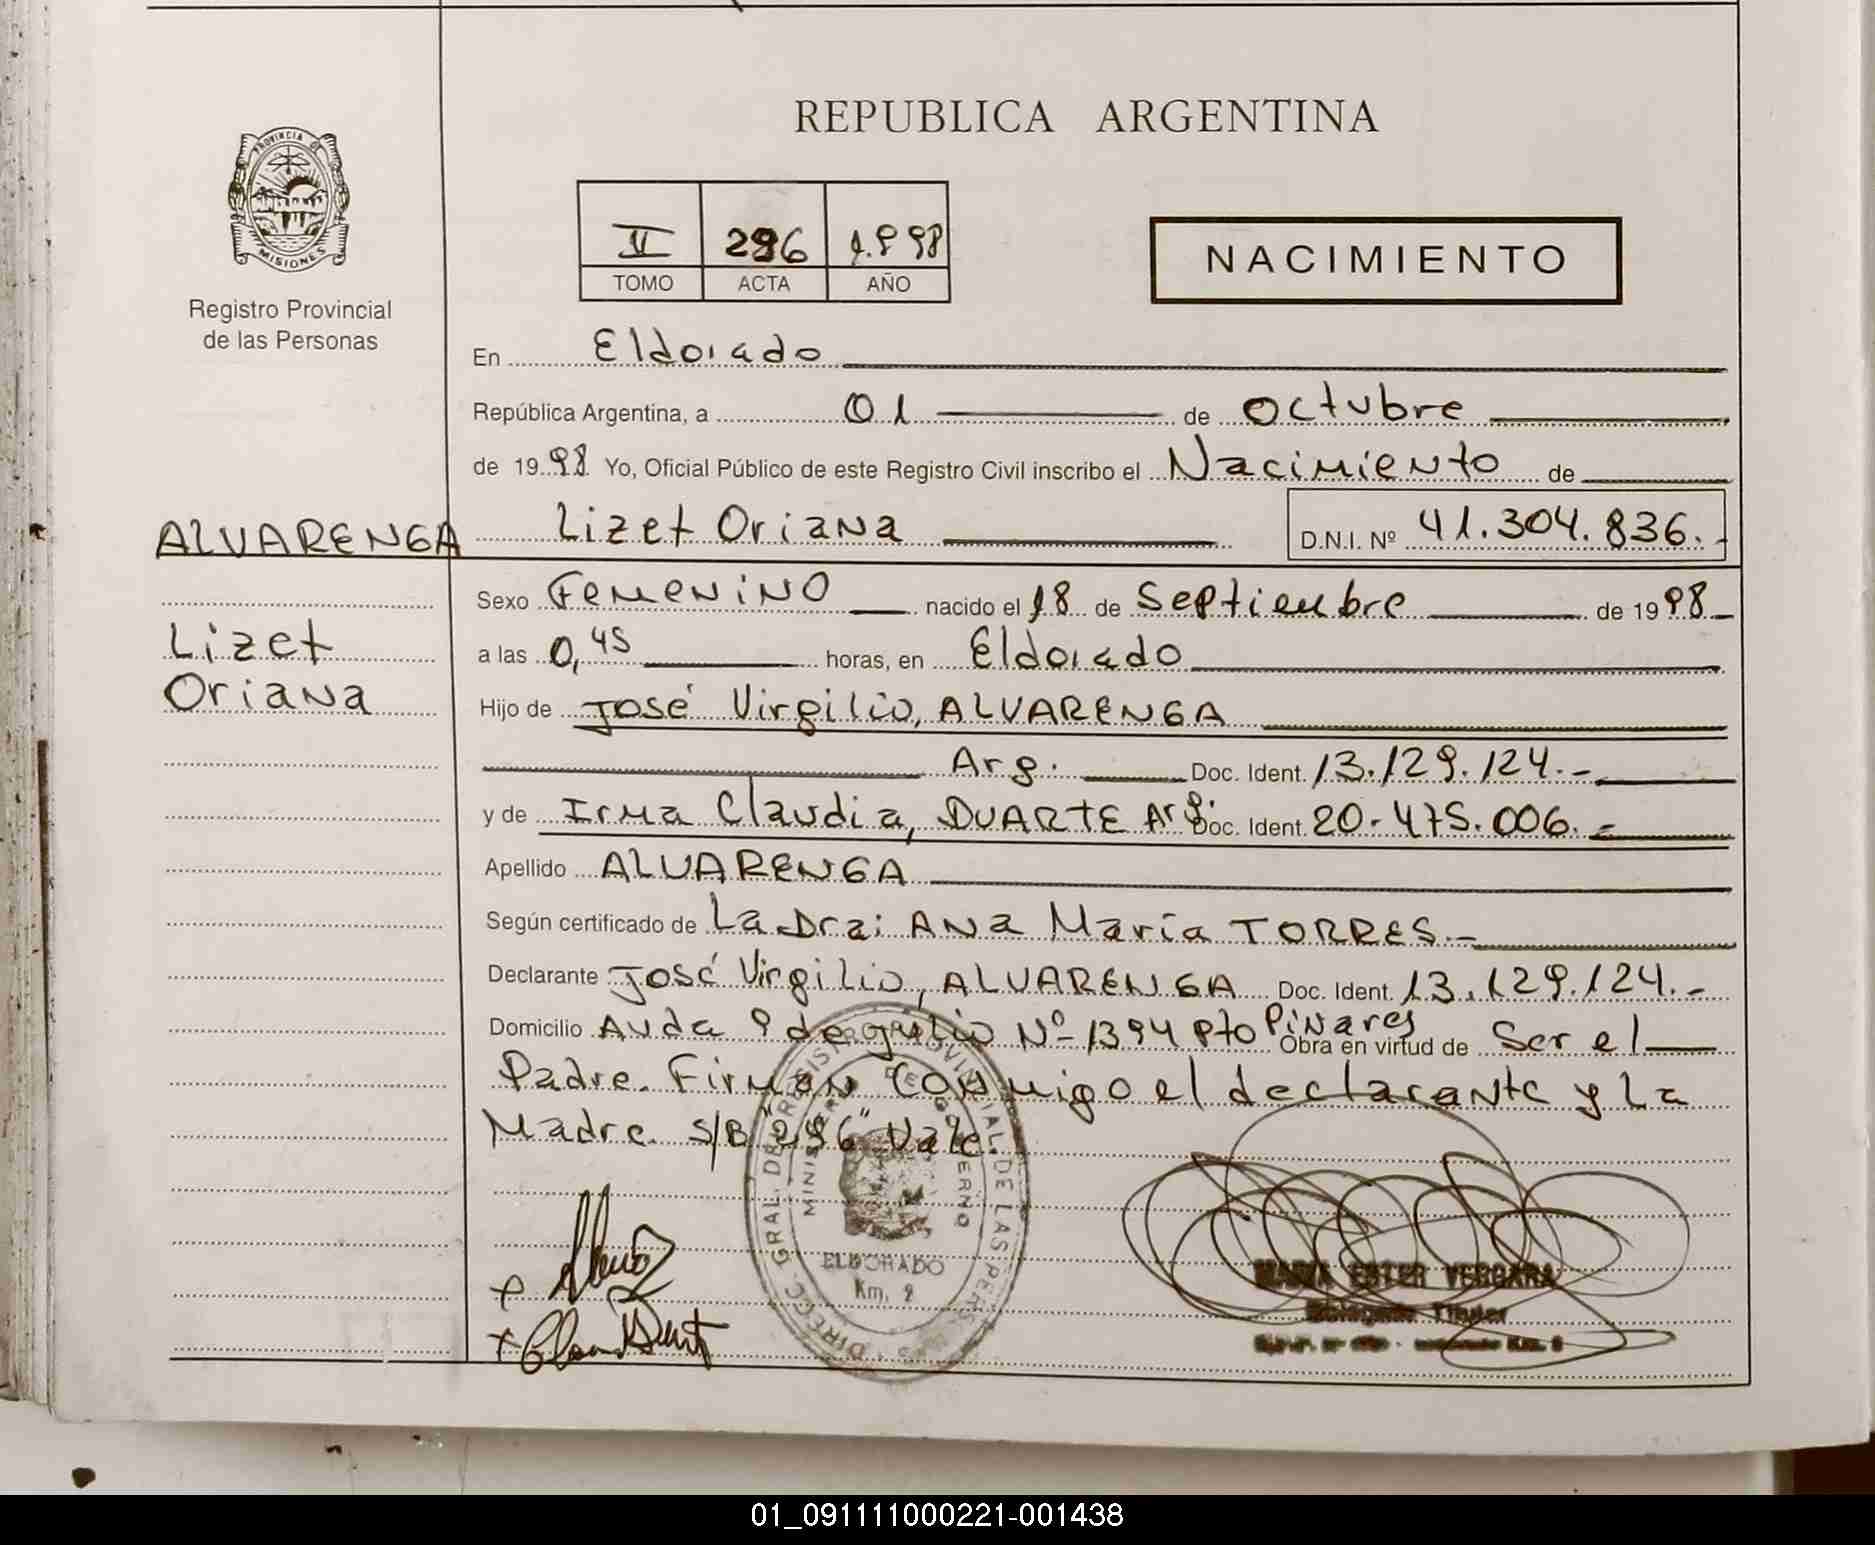 REPUBLICA ARGENTINA
PROVINCIA DE
MISIONES
Registro Provincial
de las Personas
II 296 1.998
TOMO ACTA AÑO
NACIMIENTO
En Eldorado
República Argentina, a 01 de Octubre
de 1998 Yo, Oficial Público de este Registro Civil inscribo el Nacimiento de
ALVARENGA Lizet Oriana D.N.I. Nº 41.304.836.-
Sexo Femenino nacido el 18 de Septiembre de 1998
Lizet
a las 0,45 horas, en Eldorado
Oriana
Hijo de José Virgilio, ALVARENGA
Arg. Doc. Ident. 13.129.124.-
y de Irma Claudia, DUARTE Arg. Doc. Ident. 20.475.006.-
Apellido ALVARENGA
Según certificado de La Dra: ANA María TORRES.-
Declarante José Virgilio, ALVARENGA Doc. Ident. 13.129.124.-
Domicilio Avda 9 de Julio Nº 1394 Pto Pinares Obra en virtud de Ser el
Padre. Firman Conmigo el declarante y La
Madre. S/B "296" Vale.
DIRECC. GRAL. DE REGISTRO PROVINCIAL DE LAS PERS.
MINISTERIO DE GOBIERNO
ELDORADO
Km. 9
MARIA ESTER VERGARA
Delegada Titular
01_091111000221-001438